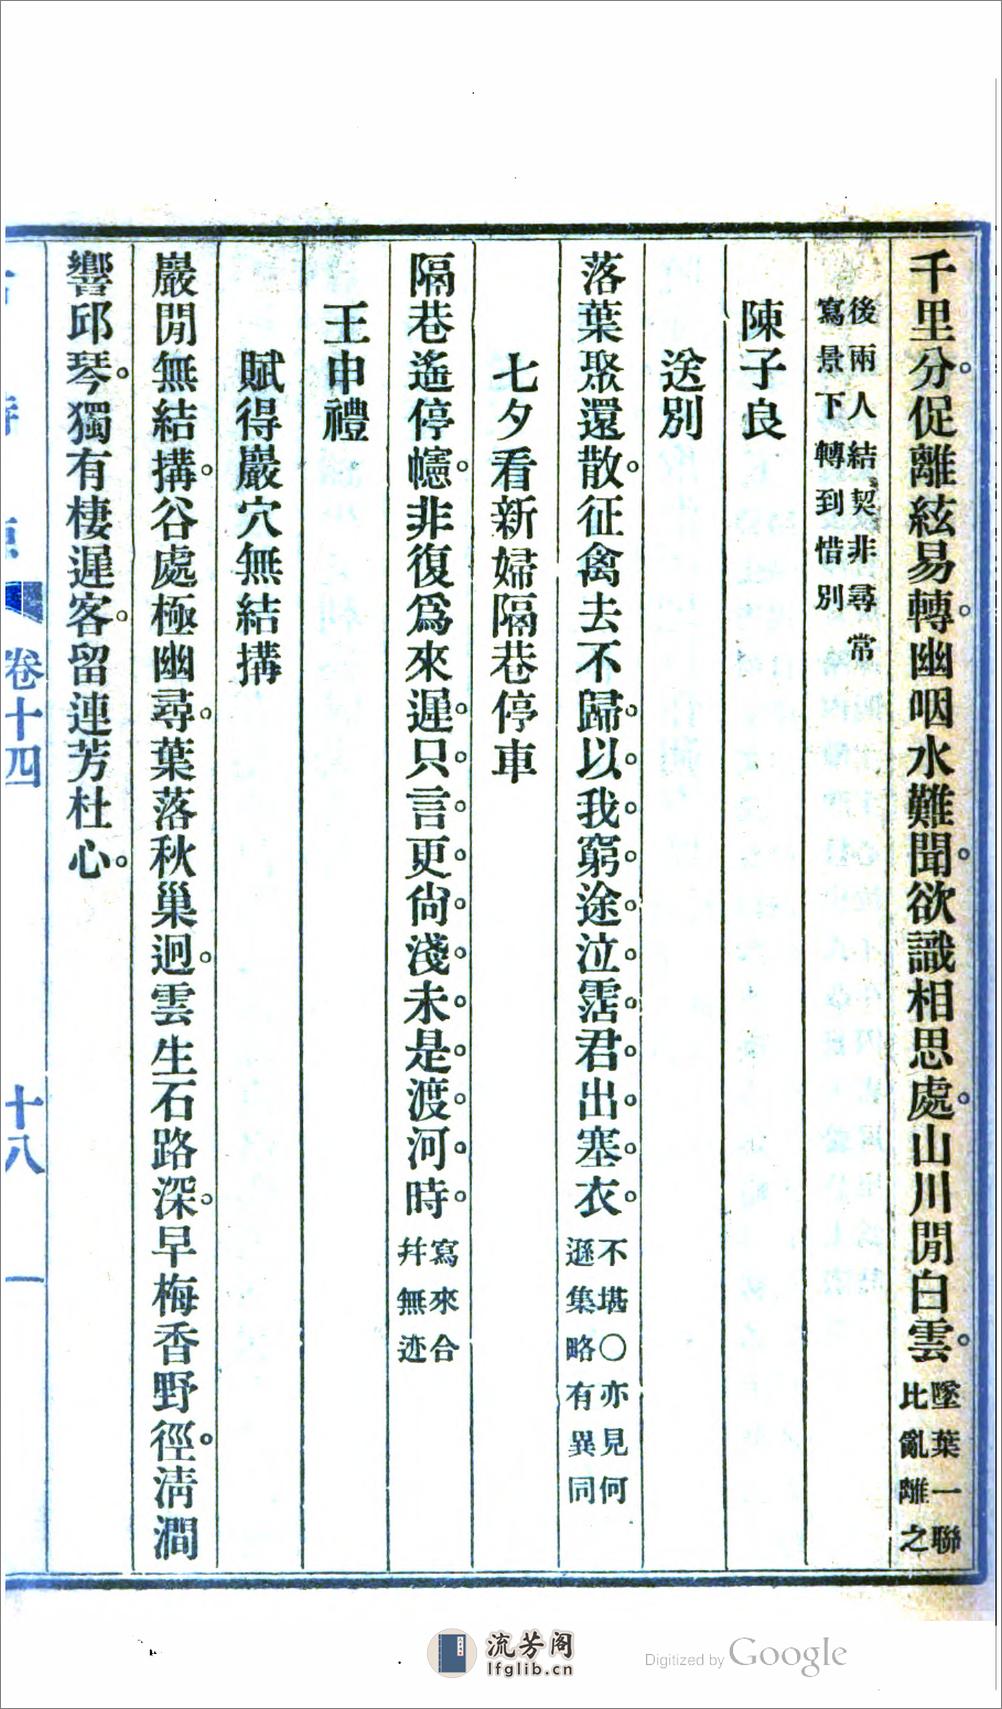 千里分促離絃易轉幽咽水難聞欲識相思處山川閒白雲墜葉一聯比亂離之
後兩人結契非尋常寫景下轉到惜別
陳子良
送別
落葉聚還散征禽去不歸以我窮途泣霑君出塞衣不堪〇亦見何遜集略有異同
七夕看新婦隔巷停車
隔巷遙停幰非復為來遲只言更尙淺未是渡河時寫來合幷無迹
王申禮
賦得巖穴無結搆
巖閒無結搆谷處極幽尋葉落秋巢迥雲生石路深早梅香野徑清澗
響邱琴獨有棲遲客留連芳杜心
卷十四
十八
流芳阁
lfglib.cn
Digitized by Google